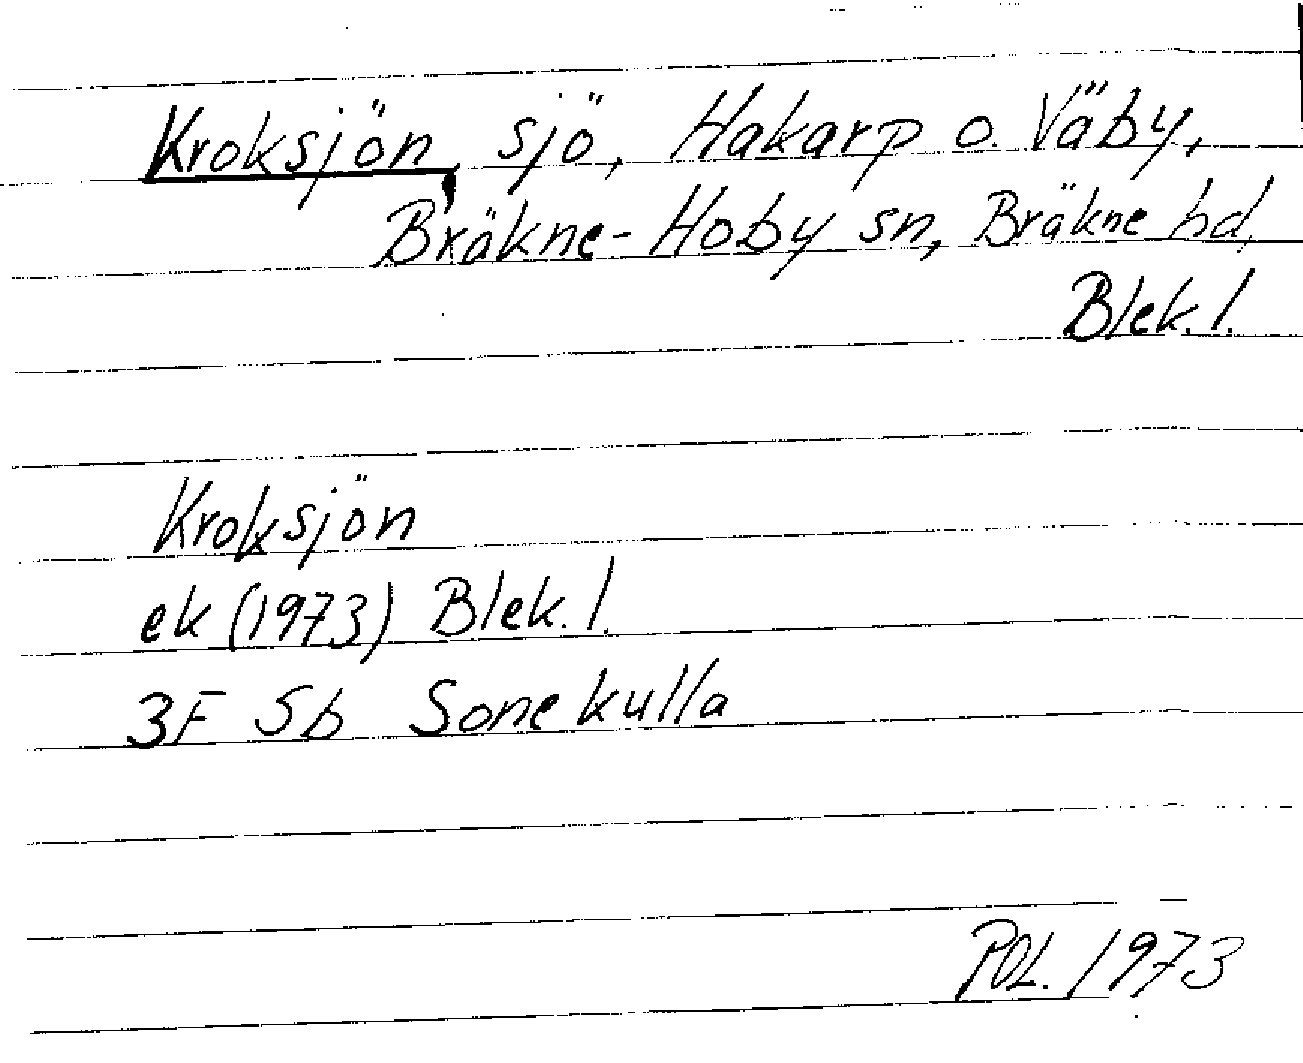 Kroksjön, sjö, Hakarp o. Väby,
Bräkne-Hoby sn, Bräkne hd,
Blek. l.
Kroksjön
ek (1973) Blek. l.
3F 5b Sonekulla
POL. 1973